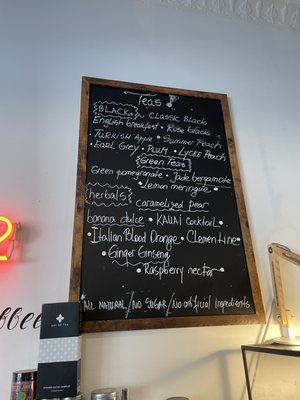 Teas
BLACK • CLASSIC Black
English breakfast • Rose black
Turkish Apple • Summer Peach
• Earl Grey • Plum • Lycee Peach
Green Teas
Green pomegranate • Jade bergamote
• Lemon meringue •
herbals caramelized pear
banana dulce • KAUAI cocktail •
• Italian Blood Orange • Clementine •
• Ginger Ginseng
• Raspberry nectar •
ALL NATURAL / NO SUGAR / No artificial ingredients
offee
ART OF TEA